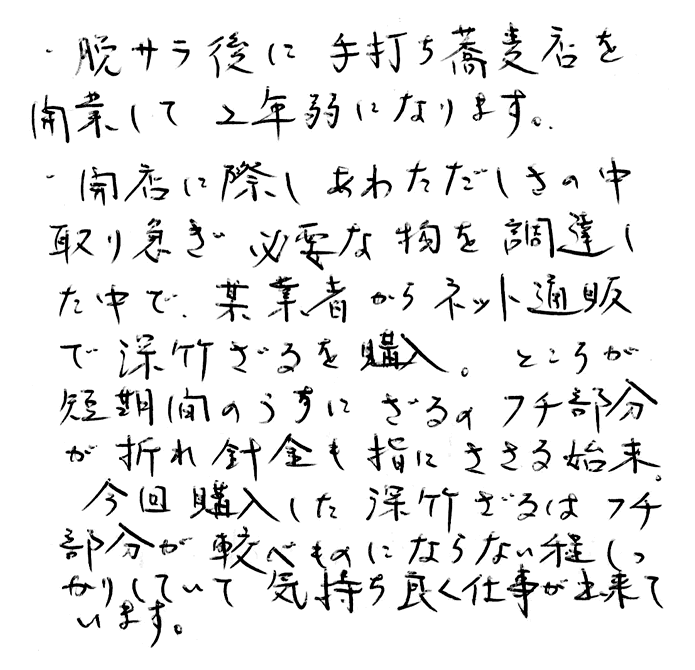 ・脱サラ後に手打ち蕎麦店を
開業して2年弱になります。
・開店に際しあわただしさの中
取り急ぎ必要な物を調達し
た中で、某業者からネット通販
で深竹ざるを購入。ところが
短期間のうちにざるのフチ部分
が折れ針金も指にささる始末。
今回購入した深竹ざるはフチ
部分が較べものにならない程しっ
かりしていて気持ち良く仕事が出来て
います。